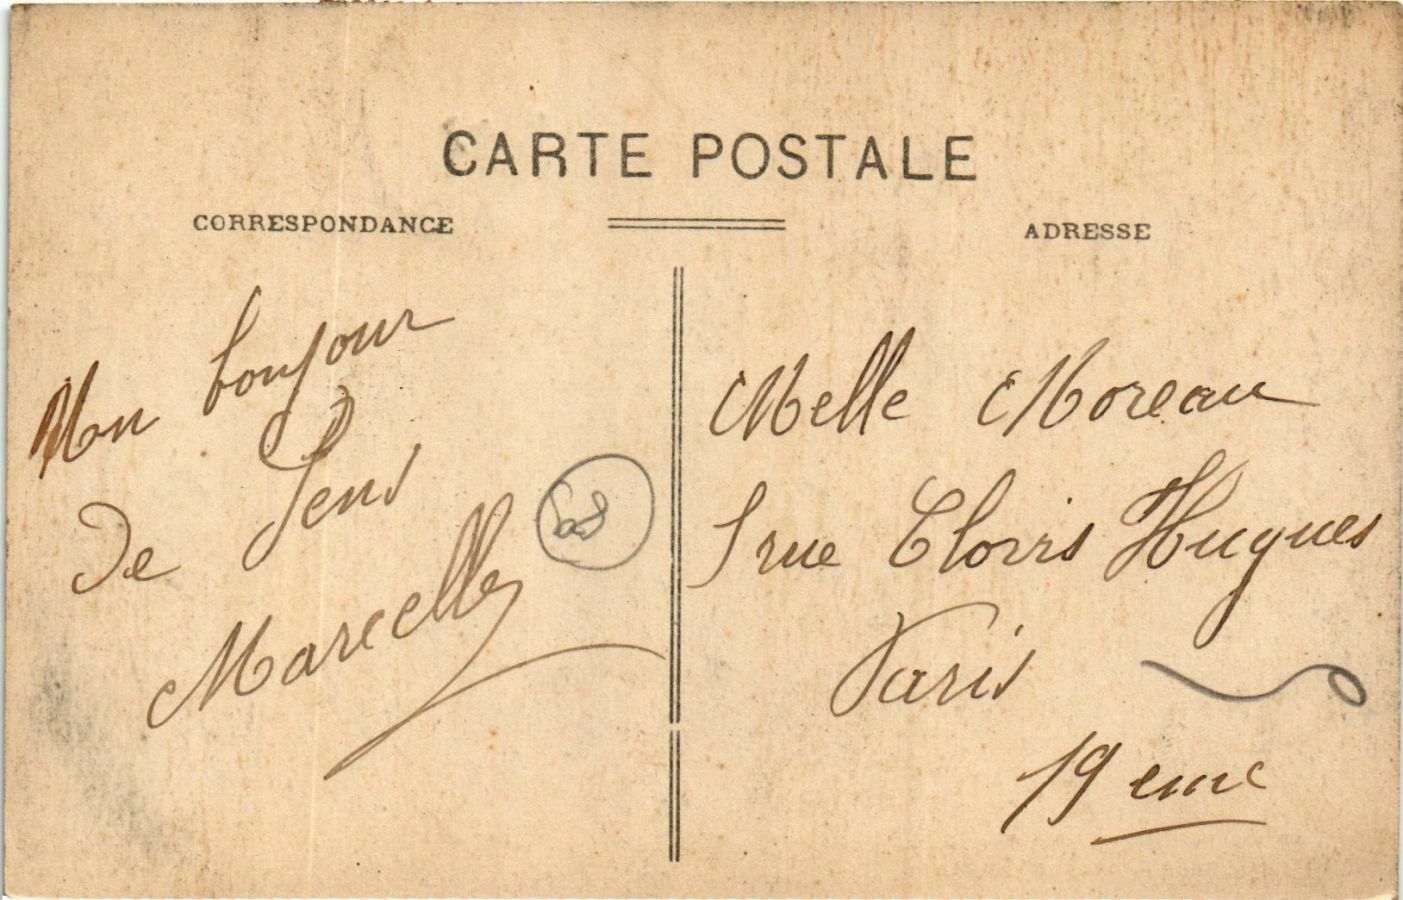 CARTE POSTALE
CORRESPONDANCE
ADRESSE
Mon bonjour
de Sens
Marcelle
Melle Moreau
rue Clovis Hugues
Paris
19 eme